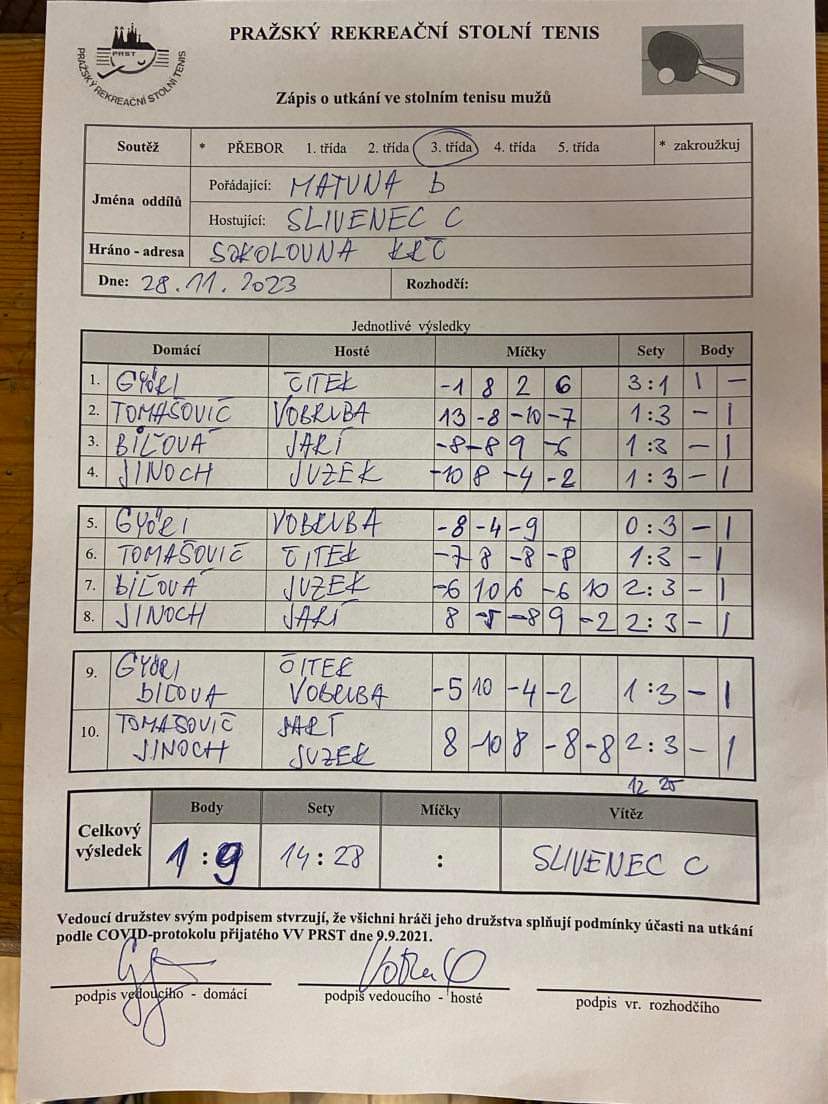 PRST
PRAŽSKÝ REKREAČNÍ STOLNÍ TENIS
PRAŽSKÝ REKREAČNÍ STOLNÍ TENIS
Zápis o utkání ve stolním tenisu mužů
Soutěž * PŘEBOR 1. třída 2. třída 3. třída 4. třída 5. třída * zakroužkuj
Jména oddílů
Pořádající: MATUNA b
Hostující: SLIVENEC C
Hráno - adresa SOKOLOVNA KRČ
Dne: 28.11.2023 Rozhodčí:
Jednotlivé výsledky
Domácí Hosté Míčky Sety Body
1. GYÖRI ČITEK -1 8 2 6 3:1 1 –
2. TOMAŠOVIČ VOBRUBA 13 -8 -10 -7 1:3 – 1
3. BÍLOVÁ JARÝ -8 -8 9 -6 1:3 – 1
4. JINOCH JUZEK -10 8 -4 -2 1:3 – 1
5. GYÖRI VOBRUBA -8 -4 -9 0:3 – 1
6. TOMAŠOVIČ ČITEK -7 8 -8 -8 1:3 – 1
7. BÍLOVÁ JUZEK -6 10 6 -6 10 2:3 – 1
8. JINOCH JARÝ 8 -5 -8 9 -2 2:3 – 1
9. GYÖRI ČITEK
BILOVA VOBRUBA -5 10 -4 -2 1:3 – 1
10. TOMAŠOVIČ JARÝ
JINOCH JUZEK 8 -10 8 -8 -8 2:3 – 1
12 25
Celkový výsledek
Body Sety Míčky Vítěz
1:9 14:28 : SLIVENEC C
Vedoucí družstev svým podpisem stvrzují, že všichni hráči jeho družstva splňují podmínky účasti na utkání
podle COVID-protokolu přijatého VV PRST dne 9.9.2021.
podpis vedoucího - domácí podpis vedoucího - hosté podpis vr. rozhodčího